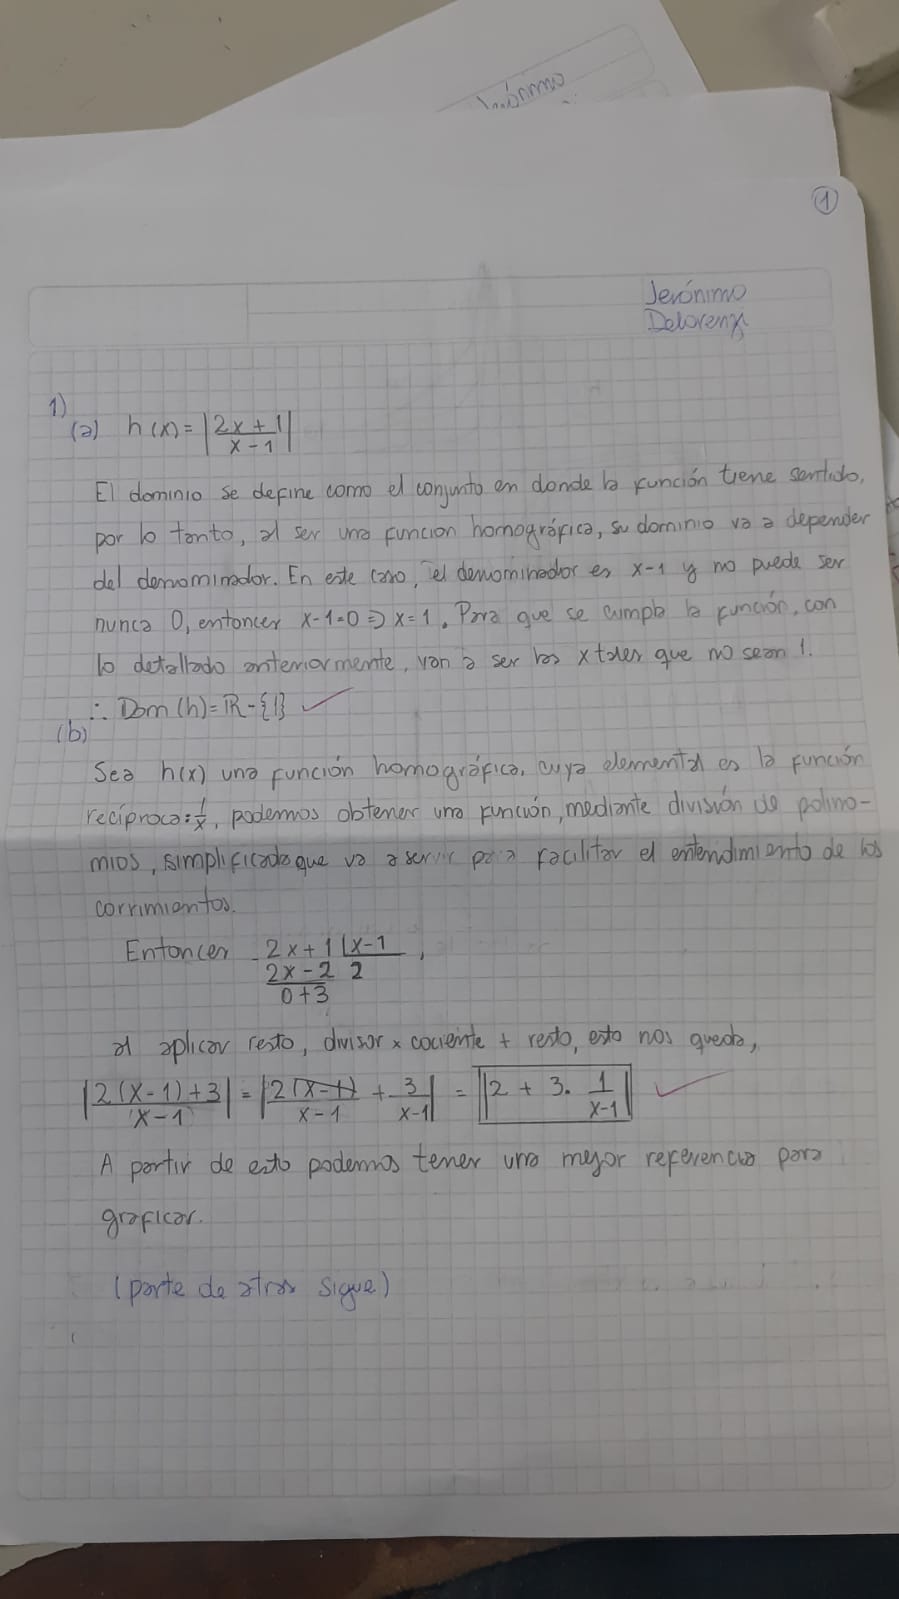 Jerónimo
1
Jerónimo
Delorenzi
1)
(a) h(x) = |2x + 1 / x - 1|
El dominio se define como el conjunto en donde la función tiene sentido,
por lo tanto, al ser una funcion homográfica, su dominio va a depender
del denominador. En este caso, el denominador es x-1 y no puede ser
nunca 0, entonces x-1=0 ⇒ x=1. Para que se cumpla la función, con
lo detallado anteriormente, van a ser los x tales que no sean 1.
∴ Dom(h)=ℝ-{1} ✓
(b)
Sea h(x) una función homográfica, cuya elemental es la función
recíproca: 1/x, podemos obtener una función, mediante división de polino-
mios, simplificada que va a servir para facilitar el entendimiento de los
corrimientos.
Entonces - 2x + 1 |x-1
2x - 2 2
0 + 3 ,
al aplicar resto, divisor × cociente + resto, esto nos queda,
|2(x-1)+3 / x-1| = |2(x-1) / x-1 + 3 / x-1| = |2 + 3. 1 / x-1| ✓
A partir de esto podemos tener una mejor referencia para
graficar.
(parte de atras sigue)